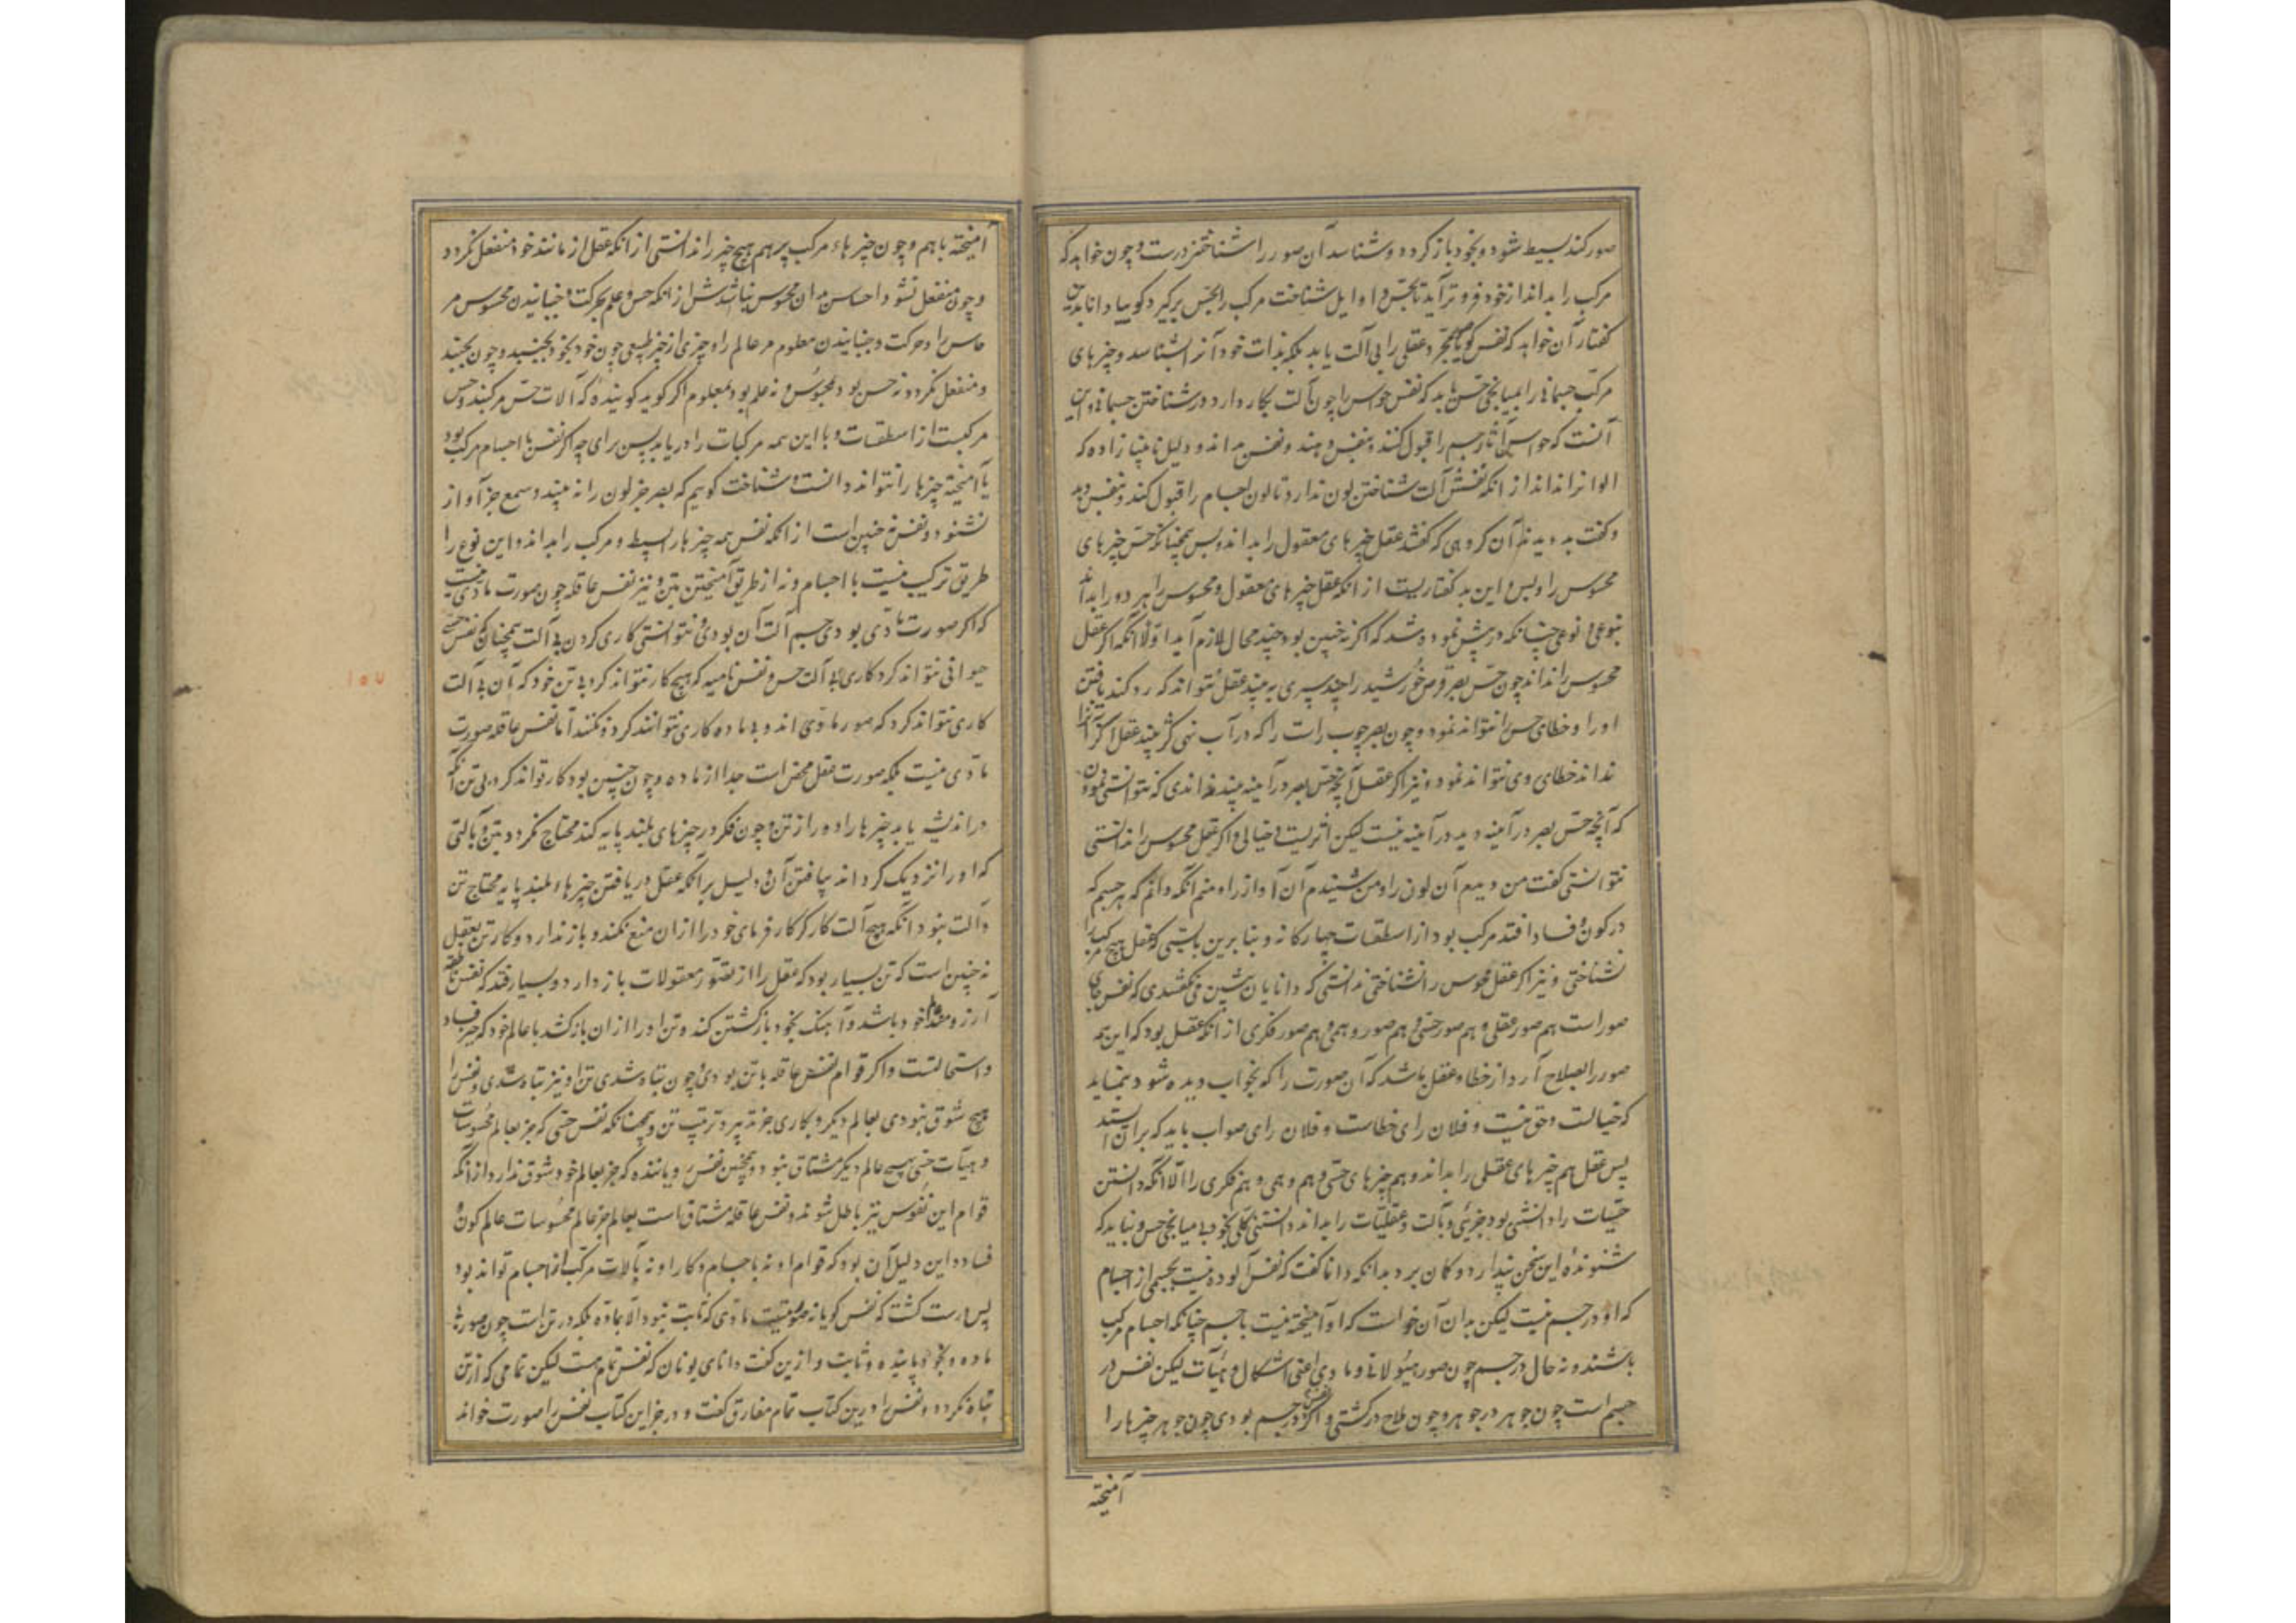 صور کند بسیط شود و بخود باز کردد و شناسد آن صور را شناختنی درست و چون خواهد که
مرکب را بداند از خود فروتر آید تا بحس و اوایل شناخت مرکب را بحس برکیرد کوییا دانا بدین
کفتار آن خواهد که نفس کویا مجرد عقلی را بی آلت یابد بلکه بذات خود آنرا شناسد و چیزهای
مرکب جسمانی را بمیانجی حس یابد که نفس حواس را چون آلت بکار دارد در شناختن جسمانی و این
آنست که حواس آثار جسم را قبول کند و نفس بیند و نفس بداند و دلیل نابینا زاده که
الوانرا نداند از آنکه نفسش آلت شناختن لون ندارد تا لون اجسام را قبول کند و نفس دید
و کفت بد دیدند آن کروهی که کفتند عقل چیزهای معقول را بداند و بس همچنانکه حس چیزهای
محسوس را و بس و این بد کفتاریست از آنکه عقل چیزهای معقول و محسوس را هر دو را بداند
بنوعی و نوعی چنانکه در پیش نموده شد که اکر نه چنین بود چند محال لازم آید اولا آنکه اکر عقل
محسوس را نداند چون حس بصر قرص خورشید را چند سپری بیند عقل نتواند که رد کند یافتن
او را و خطای حس را نتواند نمود و چون بصر چوب راست را که در آب نهی کژ بیند عقل اکر آنرا
نداند خطای وی نتواند نمود و نیز اکر عقل آنچه حس بصر در آینه بیند نداندی که نتوانستی نمودن
که آنچه حس بصر در آینه دید در آینه نیست لیکن اثریست و خیالی و اکر عقل محسوس را ندانستی
نتوانستی کفت من دیدم آن لون را و من شنیدم آن آواز را و منم آنکه دانم که هر جسم که
در کون و فساد افتد مرکب بود از اسطقسات چهارکانه و بنا برین بایستی که عقل هیچ مرکب را
نشناختی و نیز اکر عقل محسوس را نشناختی ندانستی که دانایان پیشین می کفتندی که نفس جای
صور است هم صور عقلی و هم صور حسی و هم صور وهمی و هم صور فکری از آنکه عقل بود که این همه
صور را بصلاح آرد از خطا و عقل باشد که آن صورت را که بخواب دیده شود بنماید
که خیالست و حق نیست و فلان رای خطاست و فلان رای صواب باید که بر آن ایستد
پس عقل هم چیزهای عقلی را بداند و هم چیزهای حسی و هم وهمی و هم فکری را الا آنکه دانستن
حسیات را دانشی بود جزئی و بآلت و عقلیات را بداند دانستنی کلی بخود بی میانجی حس و نباید که
شنونده این سخن پندارد و کمان برد بدانکه دانا کفت که نفس آلوده نیست بجسمی از اجسام
که او در جسم نیست لیکن بدان آن خواست که او آمیخته نیست با جسم چنانکه اجسام مرکب
باشند و نه حال در جسم چون صور هیولانی و مادی اعنی اشکال و هیآت لیکن نفس در
جسم است چون جوهر در جوهر و چون ملاح در کشتی و اکر نفس در جسم بودی چون جوهر چیزها را
آمیخته
آمیخته باهم و چون چیزهاء مرکب بر هم هیچ چیز را ندانستی از آنکه عقل از مانند خود منفعل نکردد
و چون منفعل نشود احساس بدان محسوس نباشدش از آنکه حس و علم بحرکت و جنبانیدن محسوس مر
حاس را و حرکت و جنبانیدن معلوم مر عالم را و چیزی از چیز طبیعی چون خود بخود بجنبید و چون بجنبد
و منفعل نکردد نه حس بود محسوس و نه علم بود بمعلوم اکر کوید کوینده که آلات حس مرکبند و حس
مرکبست از اسطقسات و با این همه مرکبات را دریابد پس برای چه اکر نفس با اجسام مرکب بود
یا آمیخته چیزها را نتواند دانست و شناخت کوییم که بصر جز لون را نه بیند و سمع جز آواز
نشنود و نفس نه چنین است از آنکه نفس همه چیزها را بسیط و مرکب را بداند و این نوع را
طریق ترکیب نیست با اجسام و نه از طریق آمیختن بتن و نیز نفس عاقله چون صورت مادی نیست
که اکر صورت مادی بودی جسم آلت آن بودی و نتوانستی کاری کردن بی آلت همچنان که نفس حسی
حیوانی نتواند کرد کاری بی آلت حس و نفس نامیه که هیچ کار نتواند کرد بی تن خود که آن بی آلت
کاری نتواند کرد که صور مادی اند و بی ماده کاری نتوانند کرد و نکنند اما نفس عاقله صورت
مادی نیست بلکه صورت عقل محض است جدا از ماده و چون چنین بود کار تواند کرد بی تن آنکه
در اندیشه یابد چیزها را دور از تن و چون فکر در چیزهای بلند پایه کند محتاج نکردد بتن و بآلتی
که او را نزدیک کرداند بیافتن آن و دلیل بر آنکه عقل در یافتن چیزهاء بلند پایه محتاج تن
و آلت نبود آنکه هیچ آلت کارکر کارفرمای خود را از آن منع نکند و باز ندارد و کار تن بعقل
نه چنین است که تن بسیار بود که عقل را از تصور معقولات باز دارد و بسیار افتد که نفس ناطقه
آرزومند عالم خود باشد و آهنک بخود بازکشتن کند و تن او را از آن باز کشد با عالم خود که حیز فساد
و استحالتست و اکر قوام نفس عاقله با تن بودی و چون تباه شدی تن او نیز تباه شدی و نفس را
هیچ شوق نبودی بعالم دیکر و بکاری جز تدبیر و ترتیب تن و همچنانکه نفس حسی که جز بعالم محسوسات
و هیآت حسی بهیچ عالم دیکر مشتاق نبود و همچنین نفس رویاننده که جز بعالم خود شوق ندارد از آنکه
قوام این نفوس نیز باطل شوند و نفس عاقله مشتاق است بعالم جز عالم محسوسات عالم کون و
فساد و این دلیل آن بود که قوام او نه باجسام و کار او نه بآلات مرکب از اجسام تواند بود
پس درست کشت که نفس کویا نه صورتیست مادی که ثابت نبود الا بماده بلکه در تن است چون صورت
ماده و بخود پاینده و ثابت و ازین کفت دانای یونان که نفس تمام است لیکن تمامی که از تن
تباه نکردد و نفس را درین کتاب تمام مفارق کفت و در جز این کتاب نفس را صورت خواند